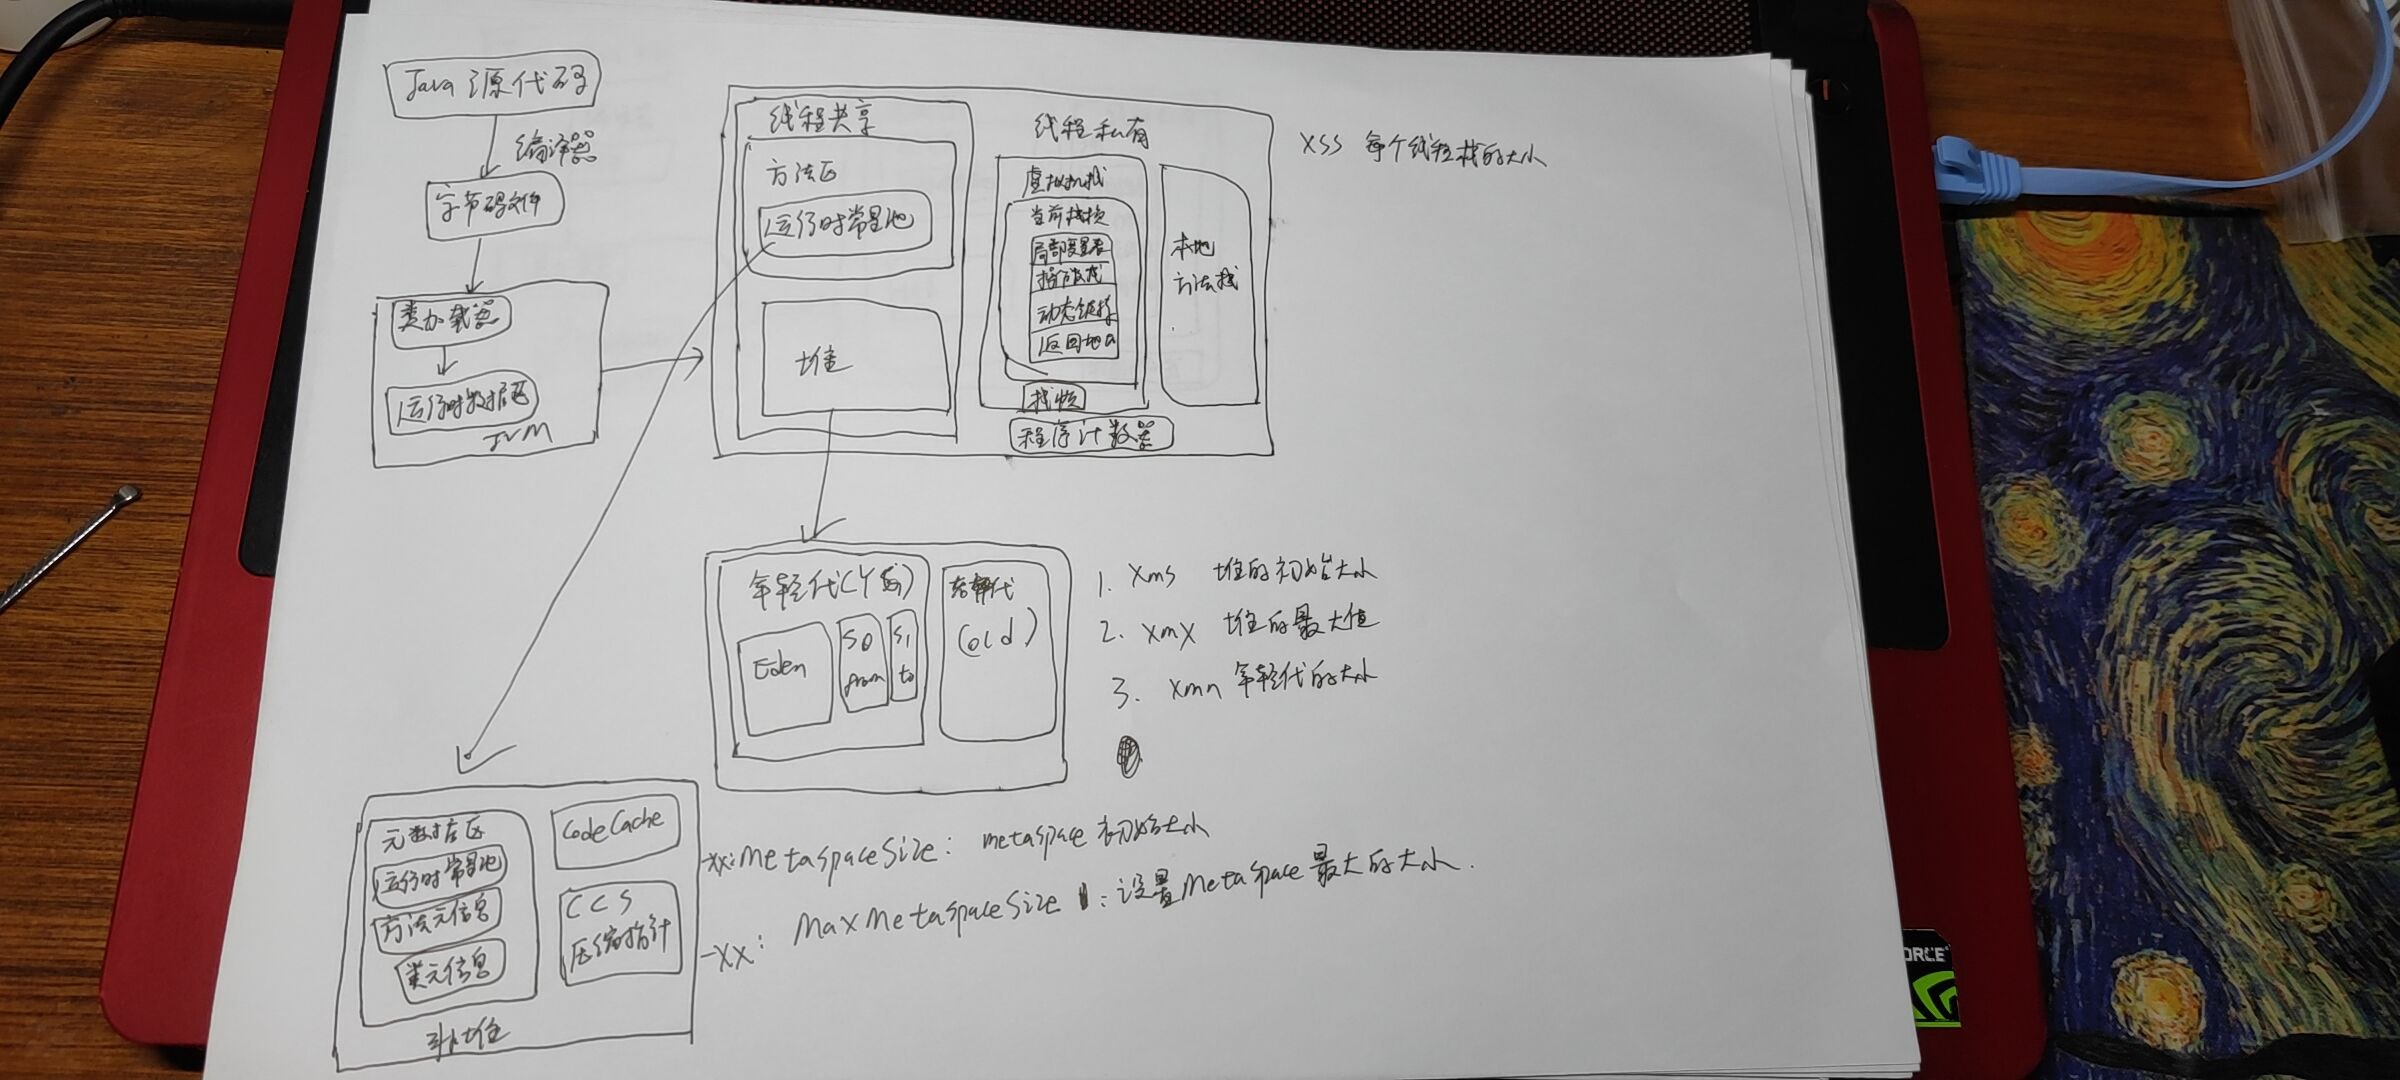 Java 源代码
编译器
字节码文件
类加载器
运行时数据区
JVM
线程共享
方法区
运行时常量池
堆
线程私有
虚拟机栈
当前栈桢
局部变量表
操作数栈
动态链接
返回地址
栈桢
程序计数器
本地
方法栈
XSS 每个线程栈的大小
年轻代(Y
Eden
S0
from
S1
to
老年代
(old)
1. Xms 堆的初始大小
2. Xmx 堆的最大值
3. Xmn 年轻代的大小
元数据区
运行时常量池
方法元信息
类元信息
CodeCache
CCS
压缩指针
非堆
-XX:MetaspaceSize: metaspace 初始大小
-XX: MaxMetaspaceSize : 设置MetaSpace最大的大小.
FORCE